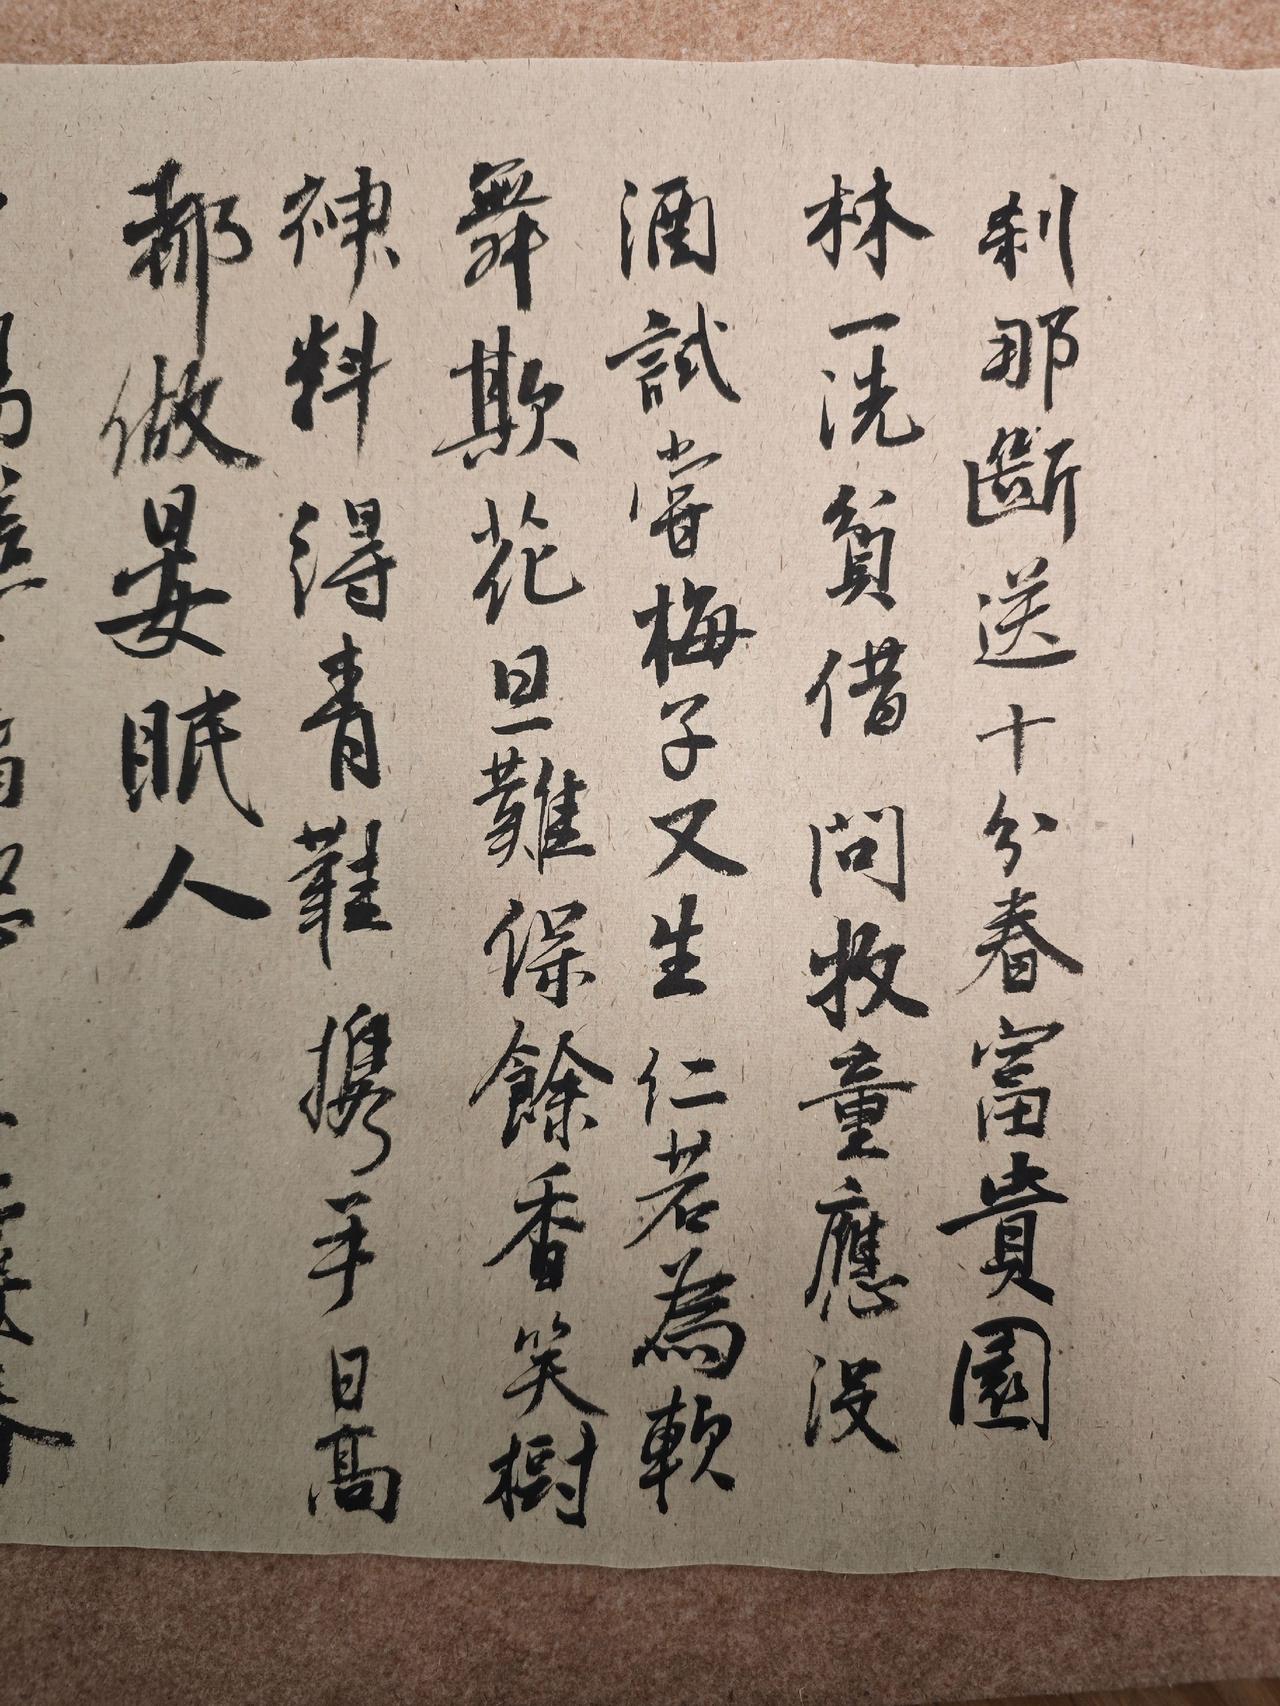 刹那斷送十分春富貴園
林一洗貧借問牧童應没
酒試嘗梅子又生仁若為軟
舞欺花旦難保餘香笑樹
神料得青鞋攜手日高
都做晏眠人